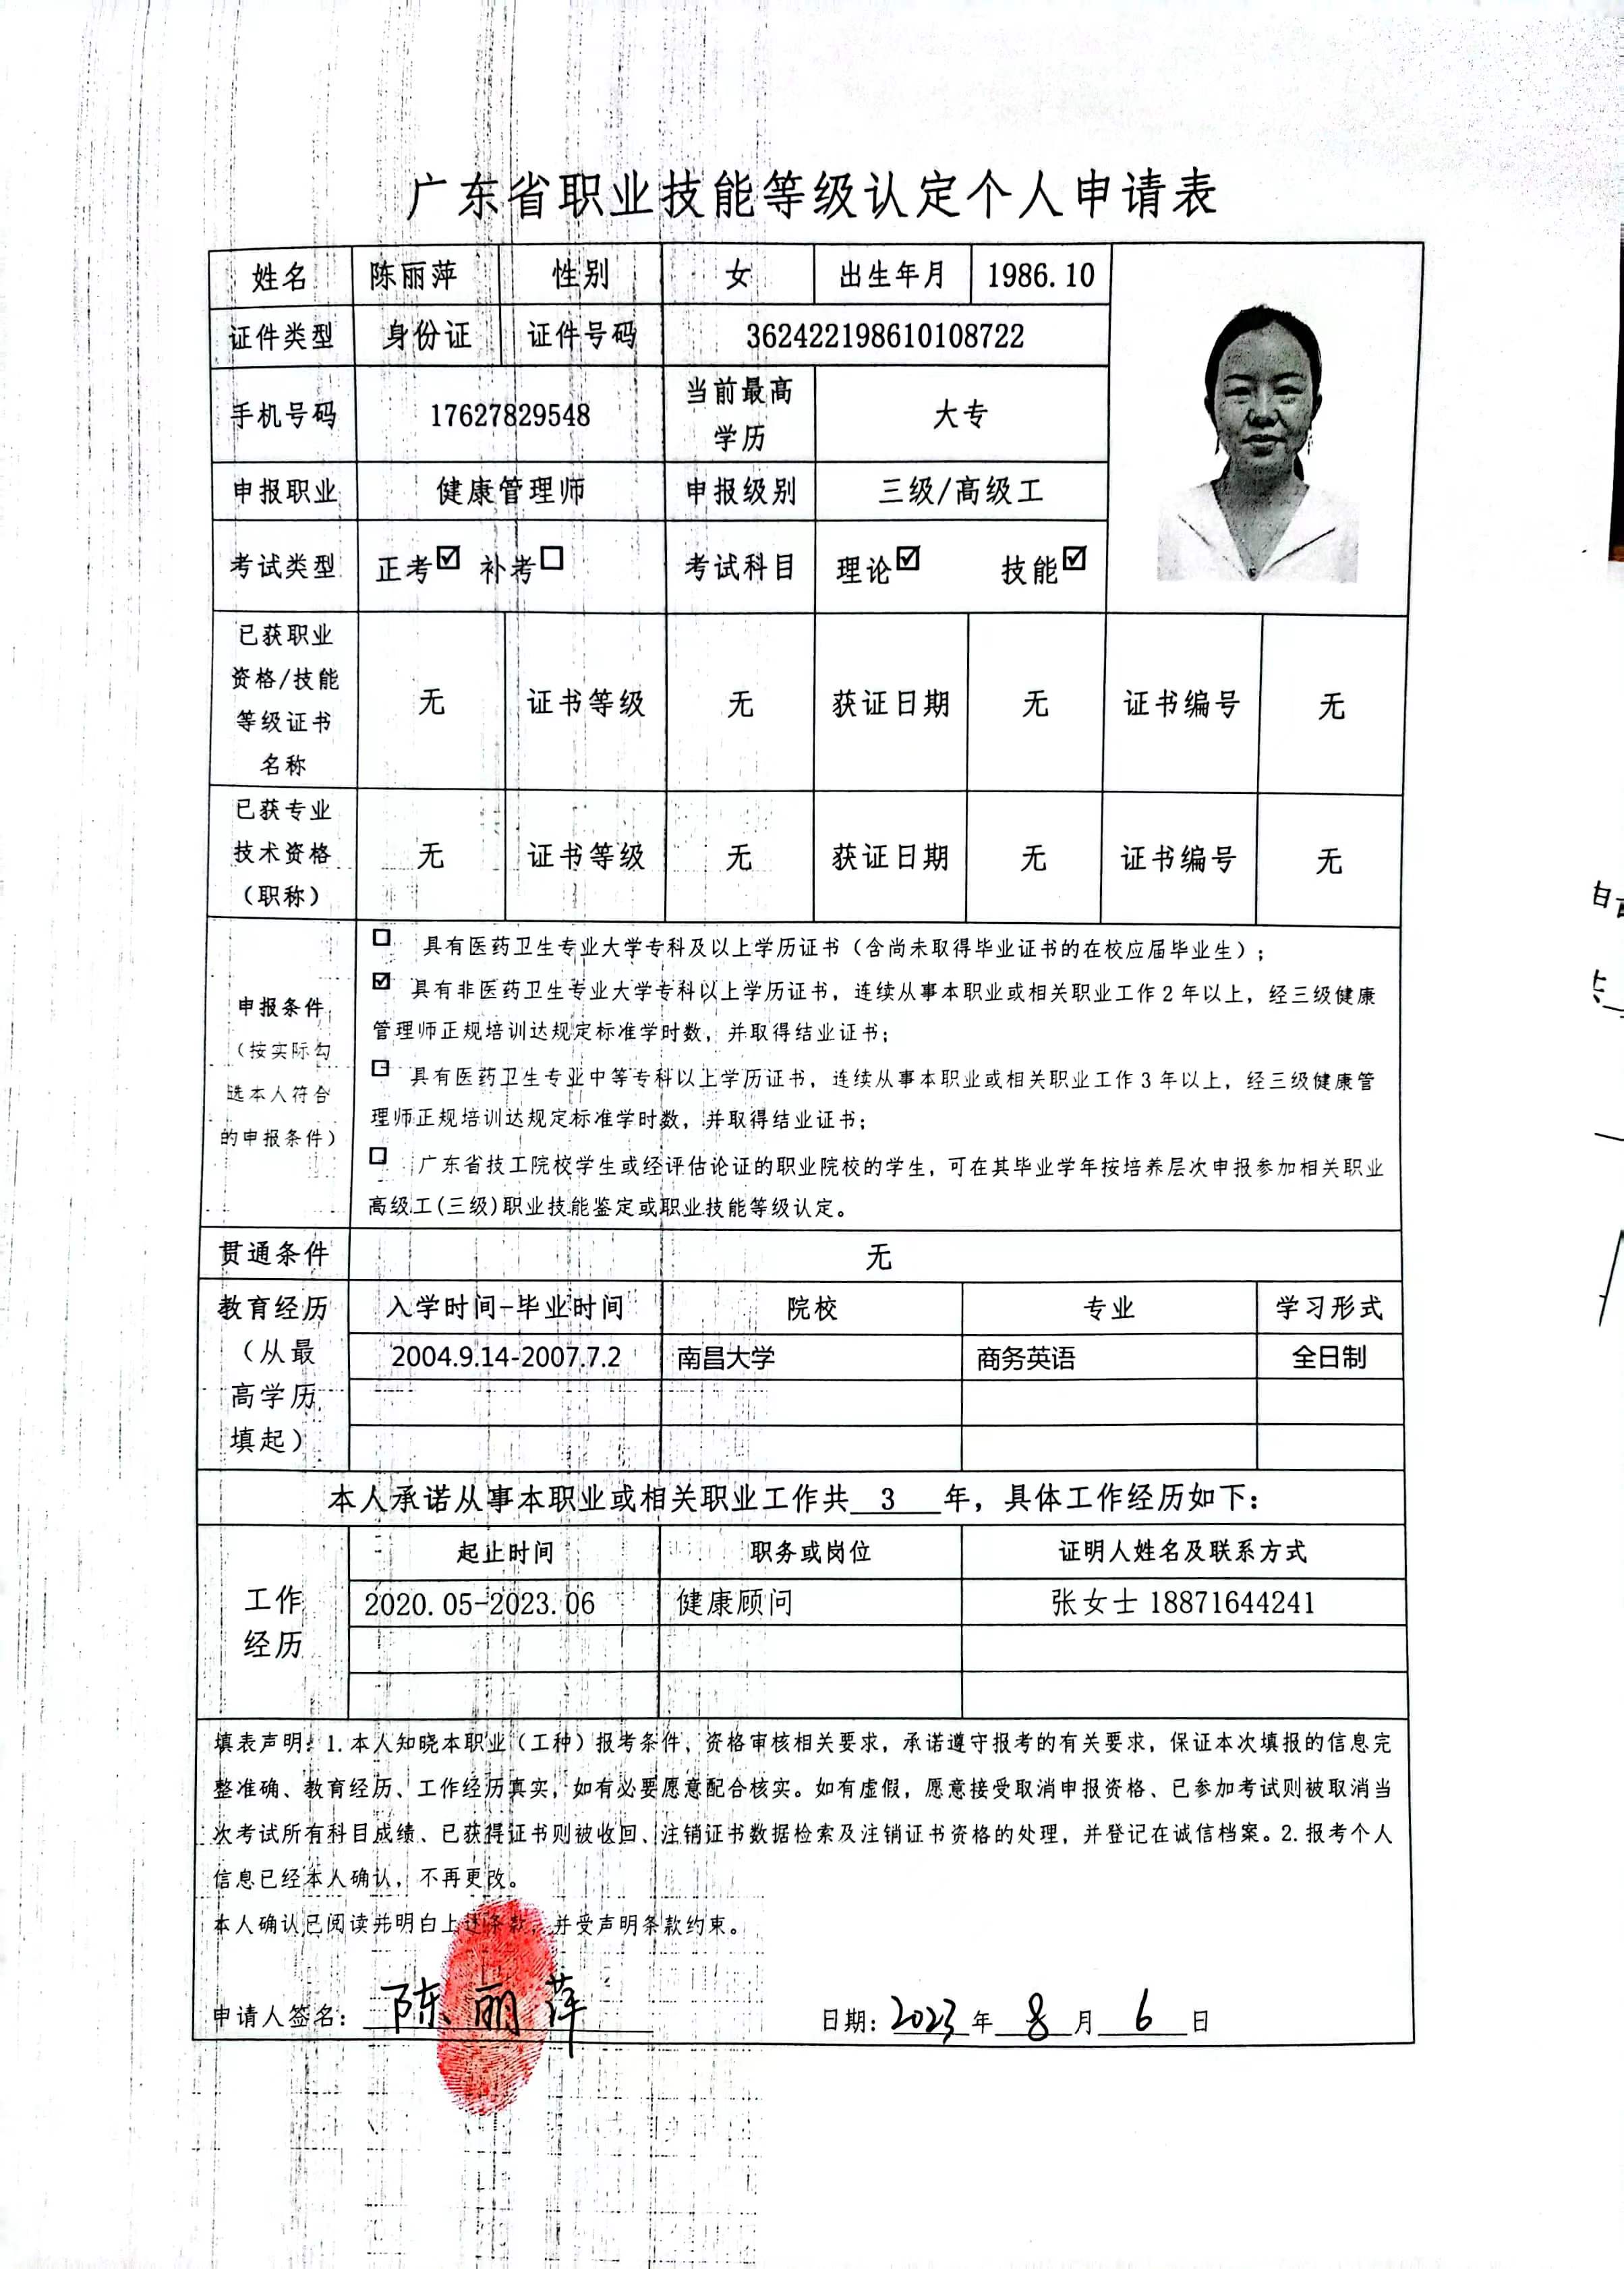 广东省职业技能等级认定个人申请表
姓名 陈丽萍 性别 女 出生年月 1986.10
证件类型 身份证 证件号码 362422198610108722
手机号码 17627829548 当前最高学历 大专
申报职业 健康管理师 申报级别 三级/高级工
考试类型 正考☑ 补考□ 考试科目 理论☑ 技能☑
已获职业
资格/技能
等级证书
名称
无 证书等级 无 获证日期 无 证书编号 无
已获专业
技术资格
(职称)
无 证书等级 无 获证日期 无 证书编号 无
申报条件
(按实际勾
选本人符合
的申报条件)
□ 具有医药卫生专业大学专科及以上学历证书(含尚未取得毕业证书的在校应届毕业生);
☑ 具有非医药卫生专业大学专科以上学历证书,连续从事本职业或相关职业工作2年以上,经三级健康
管理师正规培训达规定标准学时数,并取得结业证书;
□ 具有医药卫生专业中等专科以上学历证书,连续从事本职业或相关职业工作3年以上,经三级健康管
理师正规培训达规定标准学时数,并取得结业证书;
□ 广东省技工院校学生或经评估论证的职业院校的学生,可在其毕业学年按培养层次申报参加相关职业
高级工(三级)职业技能鉴定或职业技能等级认定。
贯通条件 无
教育经历
(从最
高学历
填起)
入学时间-毕业时间 院校 专业 学习形式
2004.9.14-2007.7.2 南昌大学 商务英语 全日制
本人承诺从事本职业或相关职业工作共 3 年,具体工作经历如下:
工作
经历
起止时间 职务或岗位 证明人姓名及联系方式
2020.05-2023.06 健康顾问 张女士 18871644241
填表声明:1.本人知晓本职业(工种)报考条件、资格审核相关要求,承诺遵守报考的有关要求,保证本次填报的信息完
整准确、教育经历、工作经历真实,如有必要愿意配合核实。如有虚假,愿意接受取消申报资格、已参加考试则被取消当
次考试所有科目成绩、已获得证书则被收回、注销证书数据检索及注销证书资格的处理,并登记在诚信档案。2.报考个人
信息已经本人确认,不再更改。
本人确认已阅读并明白上述条款,并受声明条款约束。
申请人签名: 陈丽萍 日期: 2023 年 8 月 6 日